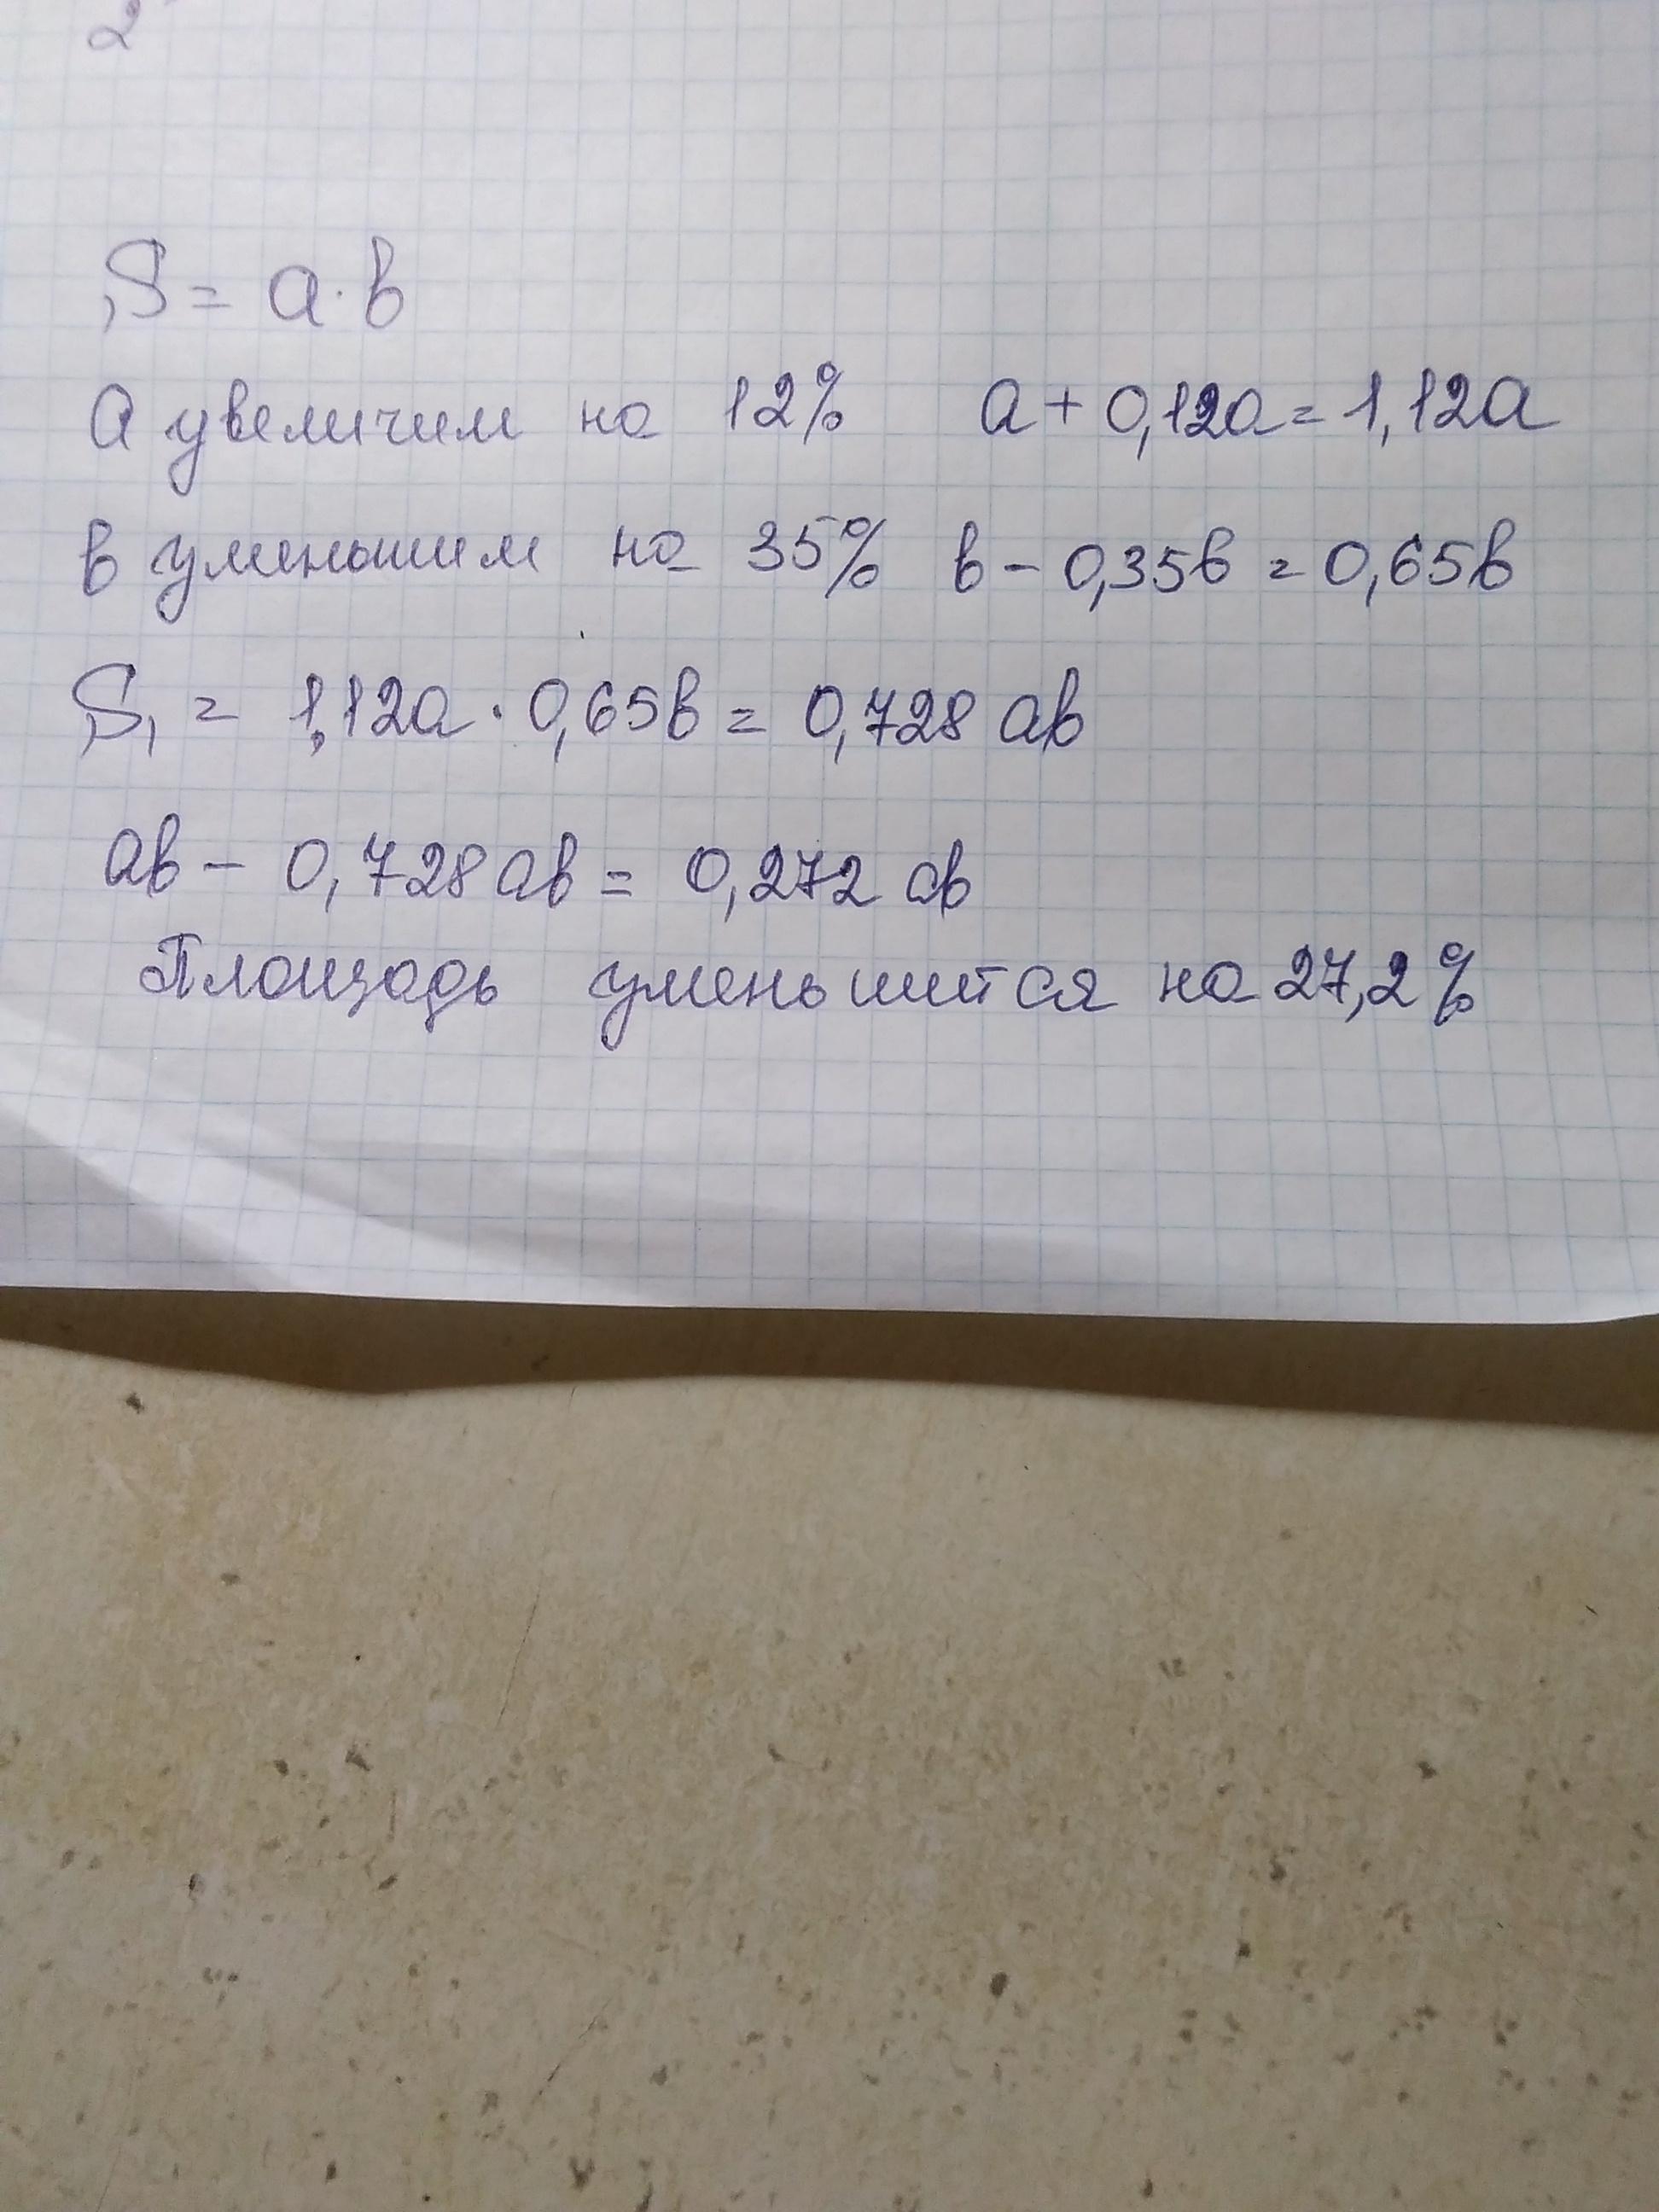 2
S = a · b
a увеличим на 12% a + 0,12a = 1,12a
b уменьшим на 35% b - 0,35b = 0,65b
S₁ = 1,12a · 0,65b = 0,728 ab
ab - 0,728 ab = 0,272 ab
Площадь уменьшится на 27,2%